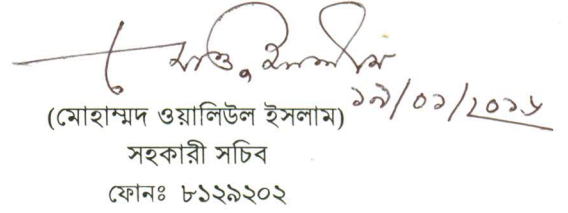 ১৯/০১/২০১৬
(মোহাম্মদ ওয়ালিউল ইসলাম)
সহকারী সচিব
ফোনঃ ৮১২৯২০২